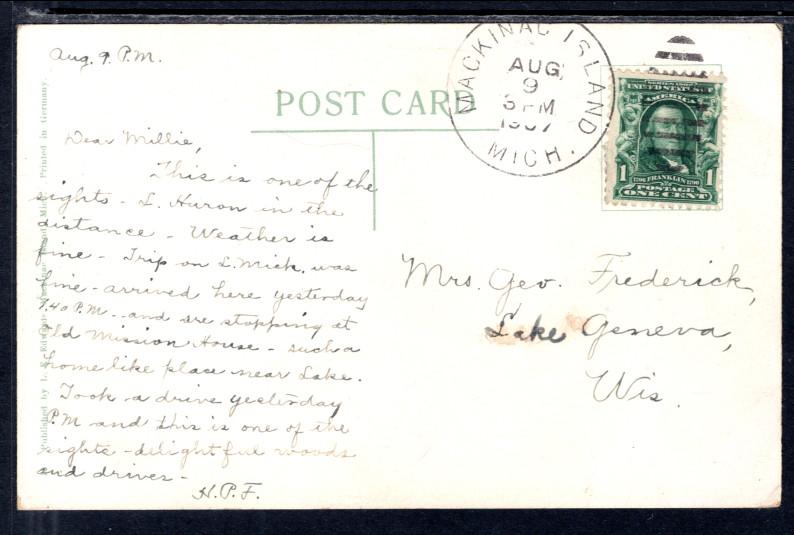 Aug. 9 P.M.
POST CARD
MACKINAC ISLAND
AUG
9
3 PM
1907
MICH.
SERIES 1902
UNITED STATES OF
AMERICA
1 1
1706 FRANKLIN 1790
POSTAGE
ONE CENT
Dear Millie,
This is one of the
sights - L. Huron in the
distance - Weather is
fine - Trip on L. Mich. was
fine - arrived here yesterday
7.40 P.M. - and are stopping at
Old Mission House - such a
home like place near Lake.
Took a drive yesterday
P.M and this is one of the
sights - delightful woods
and drives -
H.P.F.
Mrs. Geo. Frederick,
Lake Geneva,
Wis.
Published by
Mich. Printed in Germany.